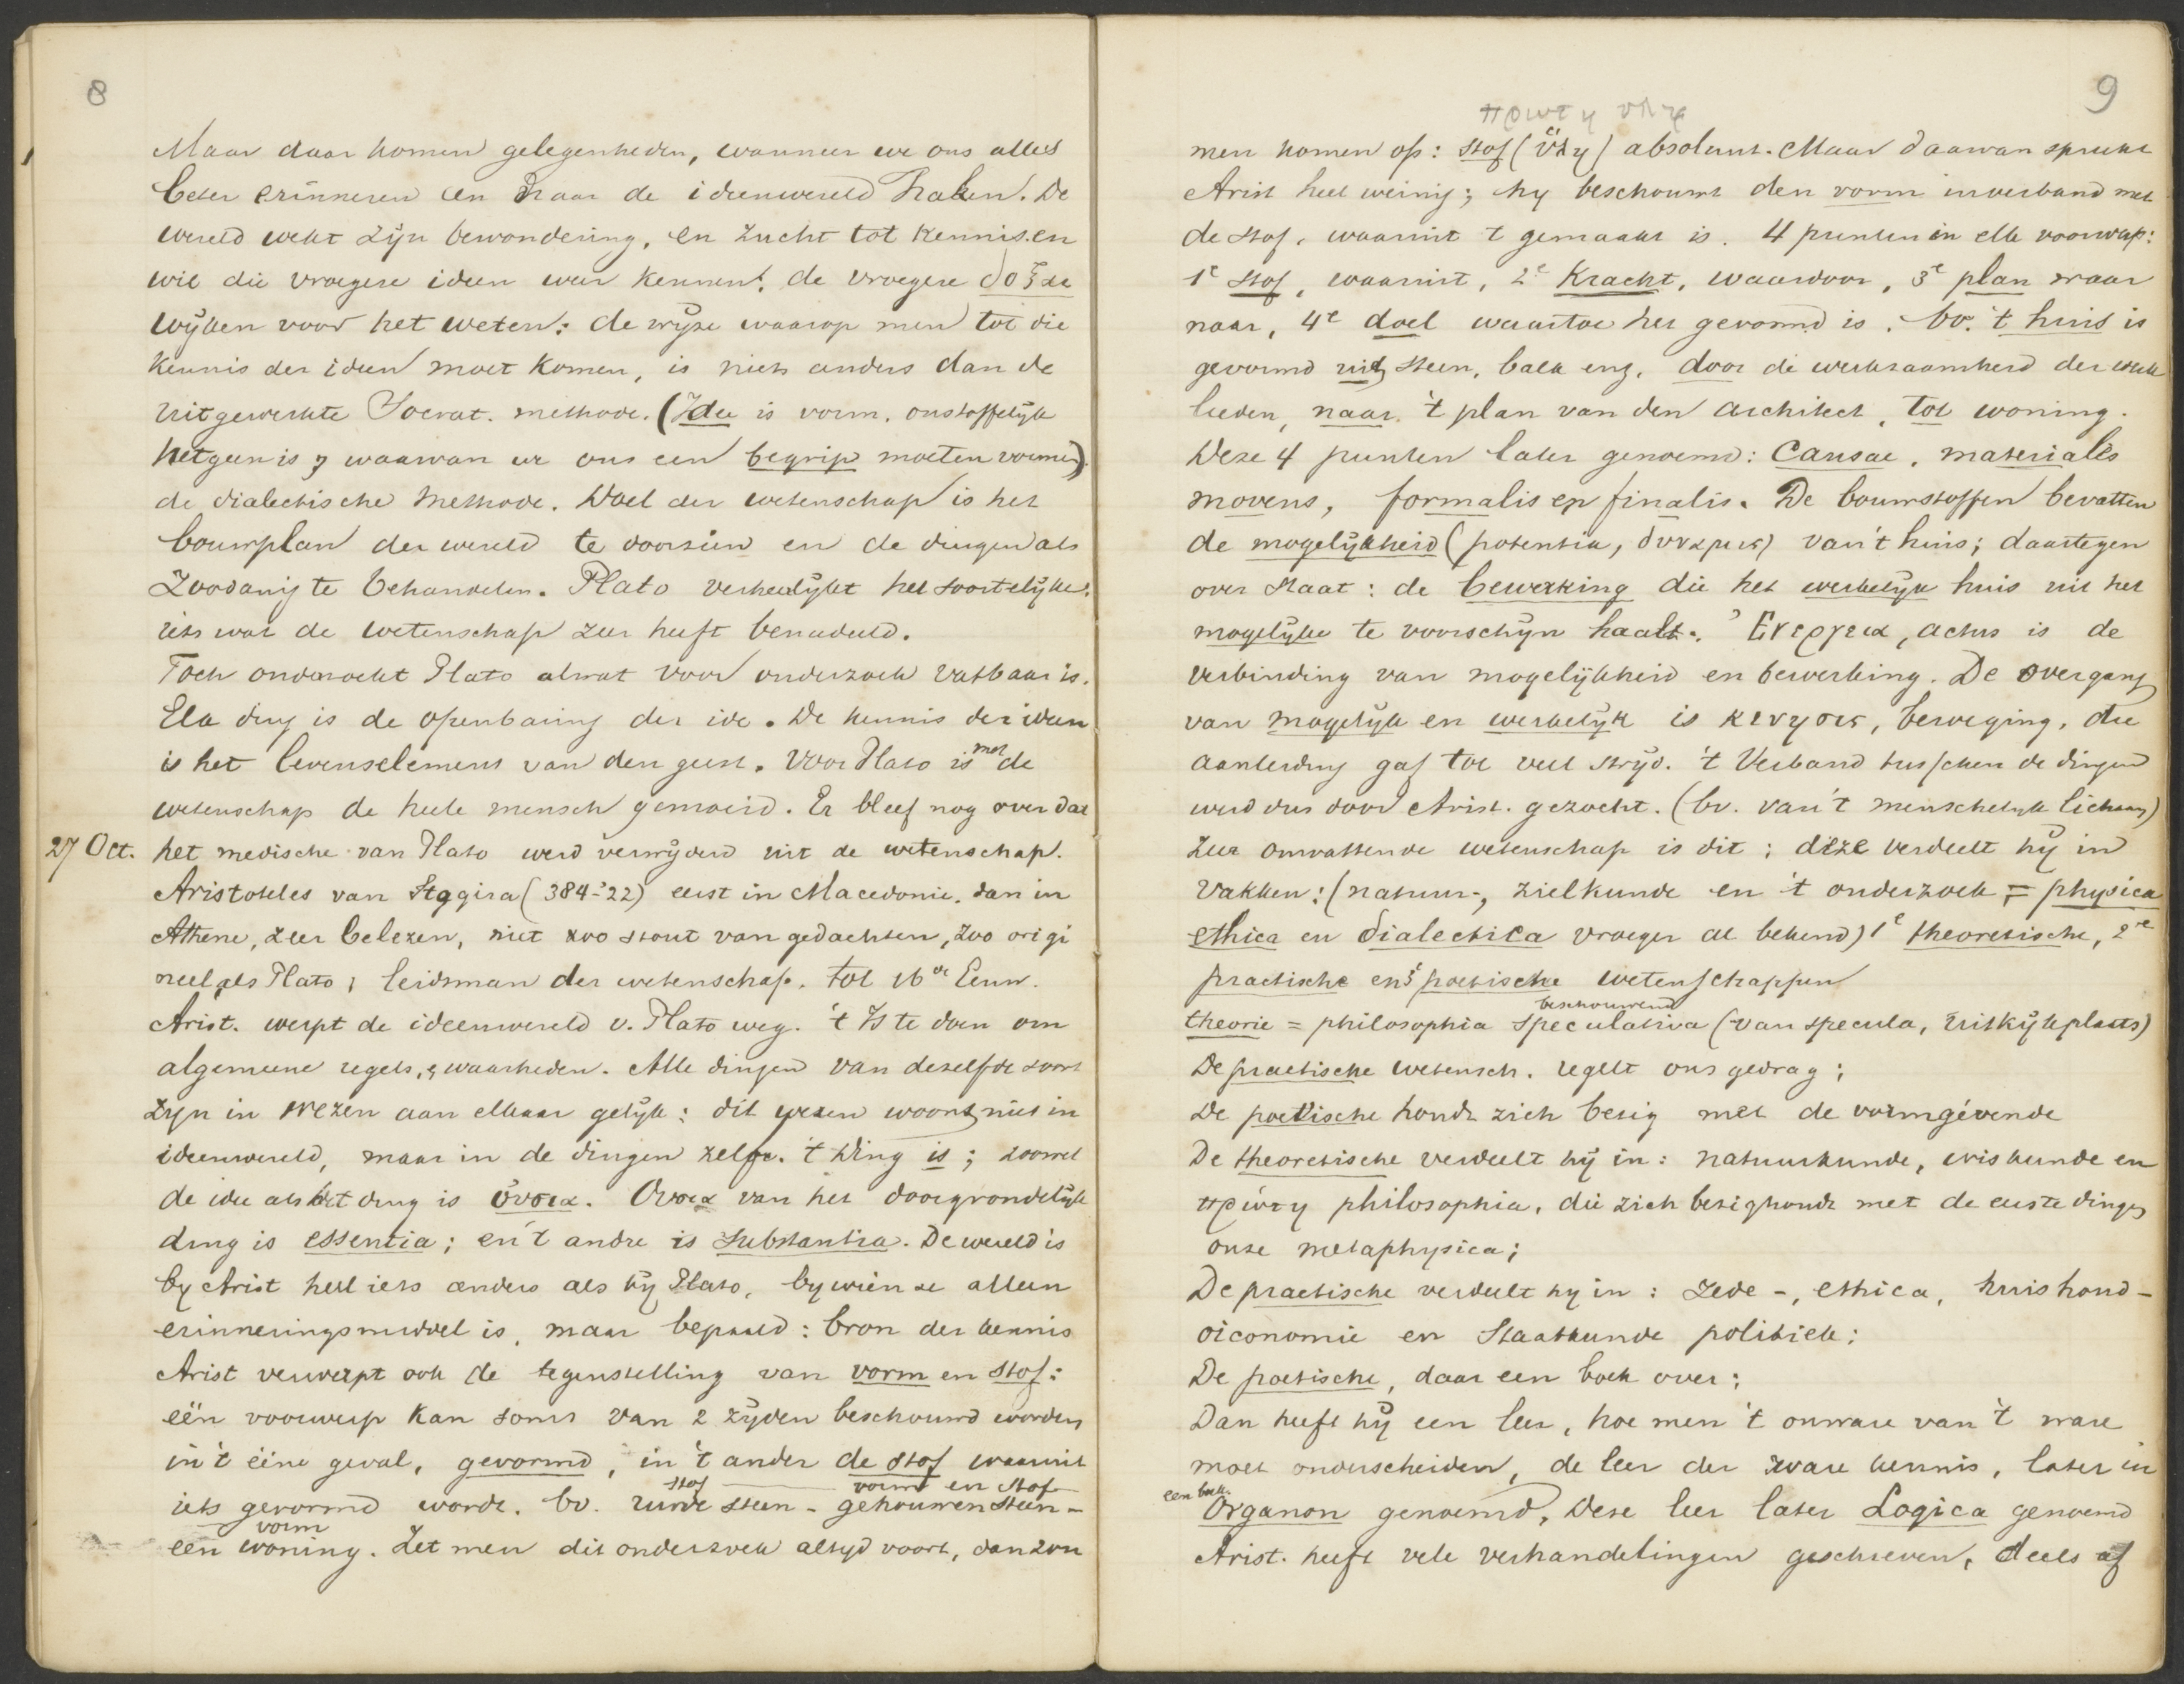 8
Maar daar komen gelegenheden, wanneer we ons alles
beter erinneren en naar de ideenwereld haken. De
wereld wekt zijn bewondering, en zucht tot kennis. en
wil die vroegere ideen weer kennen; de vroegere δοξαι
wijken voor het weten: de wijze waarop men tot die
kennis der ideen moet komen, is niets anders dan de
uitgewerkte Socrat. methode. (Idee is vorm, onstoffelijk
hetgeen is, waarvan we ons een begrip moeten vormen)
de dialectische methode. Doel der wetenschap is het
bouwplan der wereld te doorzien en de dingen als
zoodanig te behandelen. Plato verheerlijkt het soortelijke.
iets wat de wetenschap zeer heeft benadeeld.
Toch onderzoekt Plato alwat voor onderzoek vatbaar is.
Elk ding is de openbaring der idee. De kennis der ideen
is het levenselement van den geest. Voor Plato is met de
wetenschap de heele mensch gemoeid. Er bleef nog over dat
27 Oct. het medische van Plato werd verwijderd uit de wetenschap.
Aristoteles van Stagira (384-'22) eerst in Macedonie, dan in
Athene, zeer belezen, niet zoo stout van gedachten, zoo origi
neel als Plato; leidsman der wetenschap. tot 16de Eeuw.
Arist. werpt de ideenwereld v. Plato weg. 't Is te doen om
algemeene regels, waarheden. Alle dingen van dezelfde soort
zijn in wezen aan elkaar gelijk: dit wezen woont niet in
ideenwereld, maar in de dingen zelve. 't Ding is; zoowel
de idee als het ding is ουσια. Ουσια van het doorgrondelijk
ding is essentia; en 't andre is substantia. De wereld is
by Arist heel iets anders als by Plato, by wien ze alleen
erinneringsmiddel is, maar bepaald: bron der kennis
Arist verwerpt ook de tegenstelling van vorm en stof:
eën voorwerp kan soms van 2 zijden beschouwd worden
in 't eéne geval, gevormd, in 't ander de stof waaruit
stof vorm en stof
iets gevormd wordt. bv. ruwe steen - gehouwen steen -
vorm
een woning. Zet men dit onderzoek altyd voort, dan zou
9
πρωτη υλη
men komen op: stof (ὕλη) absoluut. Maar daarvan spreekt
Arist heel weinig; hy beschouwt den vorm in verband met
de stof, waaruit 't gemaakt is. 4 punten in elk voorwerp:
1e stof, waaruit, 2e Kracht, waardoor, 3e plan waar
naar, 4e doel waartoe het gevormd is. bv. 't huis is
gevormd uit steen, balk enz. door de werkzaamheid der werk
lieden, naar 't plan van den architect, tot woning.
Deze 4 punten later genoemd: Causae, materialis
movens, formalis en finalis. De bouwstoffen bevatten
de mogelijkheid (potentia, δυναμις) van 't huis; daartegen
over staat: de bewerking die het werkelijk huis uit het
mogelijke te voorschijn haalt. Ενεργεια, actus is de
verbinding van mogelijkheid en bewerking. De overgang
van mogelijk en werkelijk is κινησις, beweging, die
aanleiding gaf tot veel strijd. 't Verband tusschen de dingen
werd dus door Arist. gezocht. (bv. van 't menschelijk lichaam)
Zeer omvattende wetenschap is dit; deze verdeelt hij in
vakken: (natuur-, zielkunde en 't onderzoek = physica
ethica en dialectica vroeger al bekend) 1e theoretische, 2e
practische en 3e poetische wetenschappen
beschouwend
theorie = philosophia speculativa (van specula, uitkijkplaats)
De practische wetensch. regelt ons gedrag;
De poetische houdt zich bezig met de vormgevende
De theoretische verdeelt hij in: natuurkunde, wiskunde en
πρώτη philosophia, die zich bezighoudt met de eerste dingen
onze metaphysica;
De practische verdeelt hy in: Zede-, ethica, huishoud-
oiconomie en Staatkunde politiek;
De poetische, daar een boek over;
Dan heeft hij een leer, hoe men 't onware van 't ware
moet onderscheiden, de leer der ware kennis, later in
een boek.
Organon genoemd, Deze leer later Logica genoemd
Arist. heeft vele verhandelingen geschreven, deels af